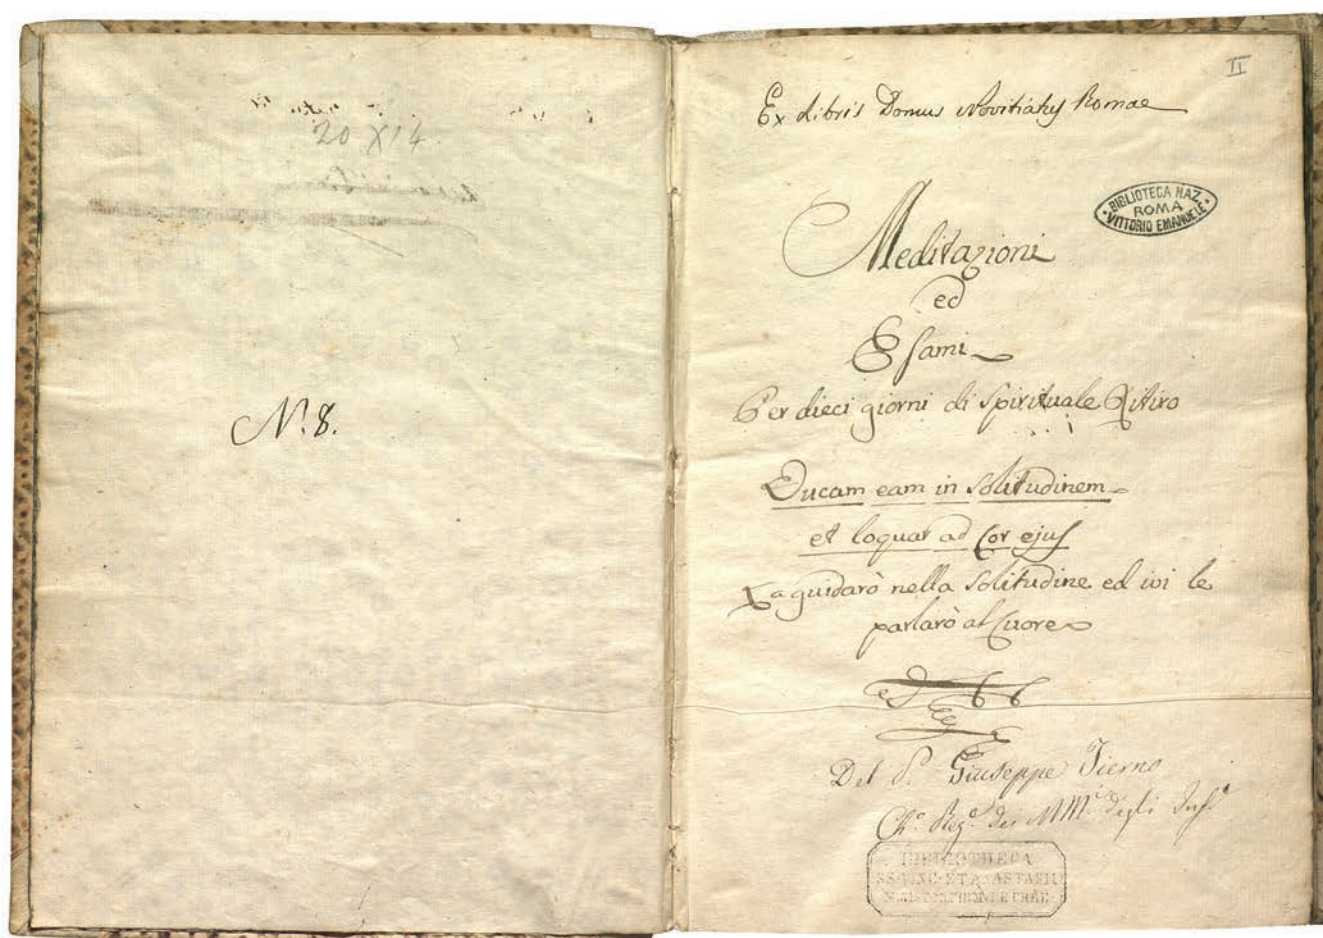 20 X 14
N.° 8.
II
Ex Libris Domus Novitiatus Romae
BIBLIOTECA NAZ.
ROMA
VITTORIO EMANUELE
Meditazioni
ed
Esami
Per dieci giorni di Spirituale Ritiro
Ducam eam in Solitudinem
et loquar ad Cor ejus
La guidarò nella Solitudine ed ivi le
parlarò al Cuore
Del P. Giuseppe Tierno
Ch.° Reg.e dei MM.i degli Inf.i
BIBLIOTHECA
SS. VINC. ET ANASTASII